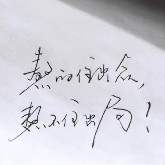 熬的住出众,
熬不住出局!